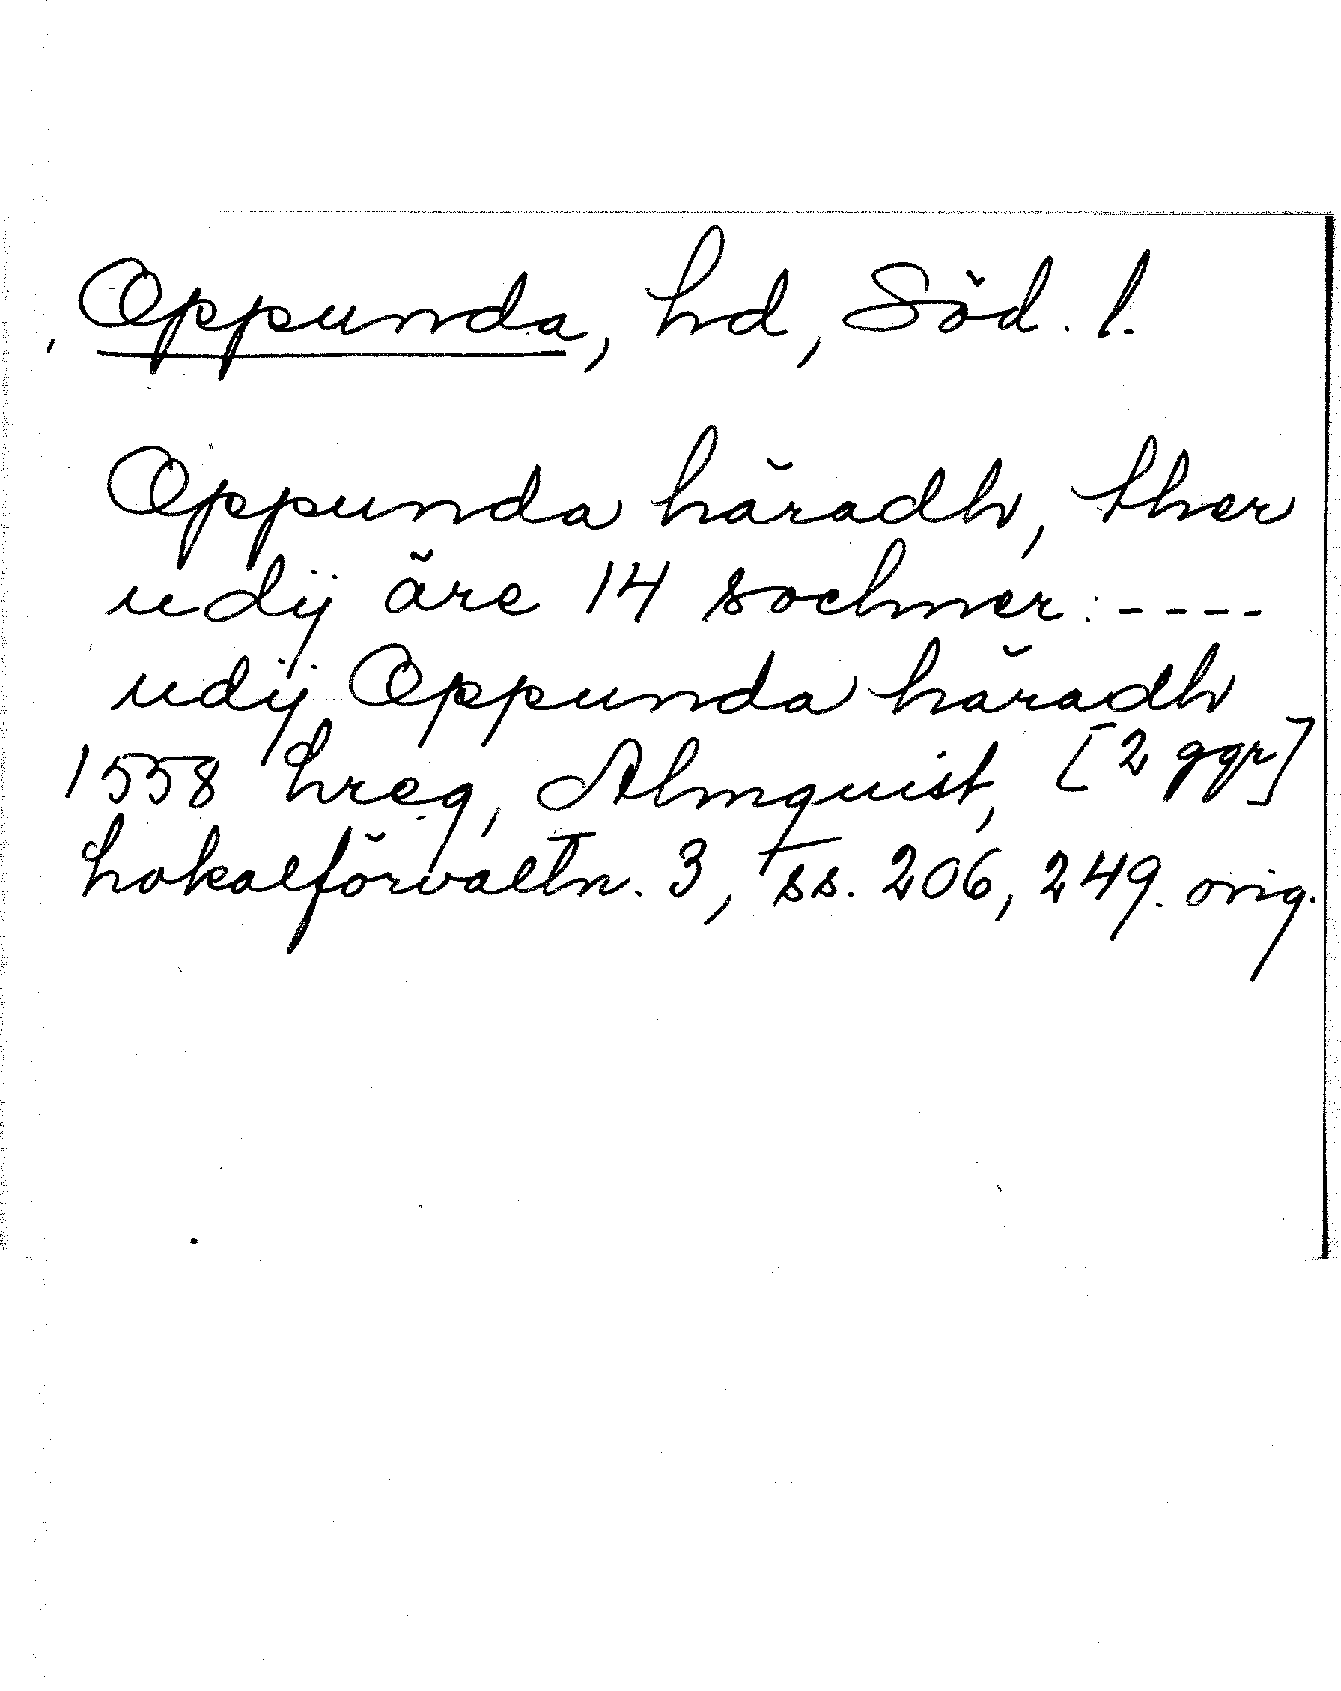 Oppunda, hd, Söd. l.
Oppunda häradh, ther
udij äre 14 sochner: ----
udij Oppunda häradh
[2 ggr]
1558 hreg, Almquist,
Lokalförvaltn. 3, ss. 206, 249. orig.